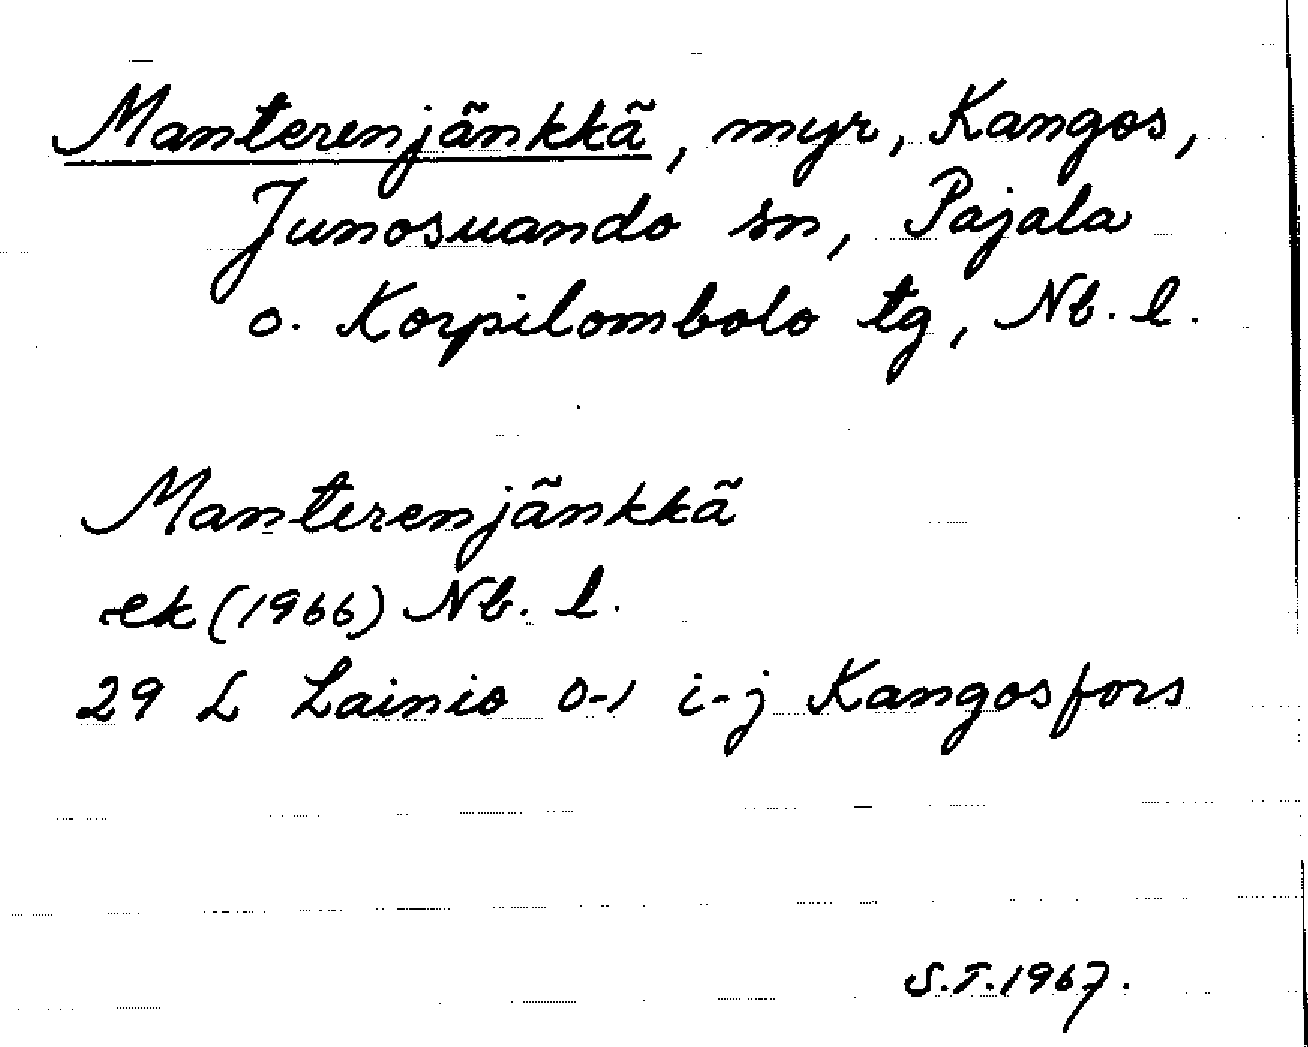 Manterenjänkkä, myr, Kangos,
Junosuando sn, Pajala
o. Korpilombolo tg, Nb. l.
Manterenjänkkä
ek (1966) Nb. l.
29 L Lainio 0-1 i-j Kangosfors
S.T. 1967.